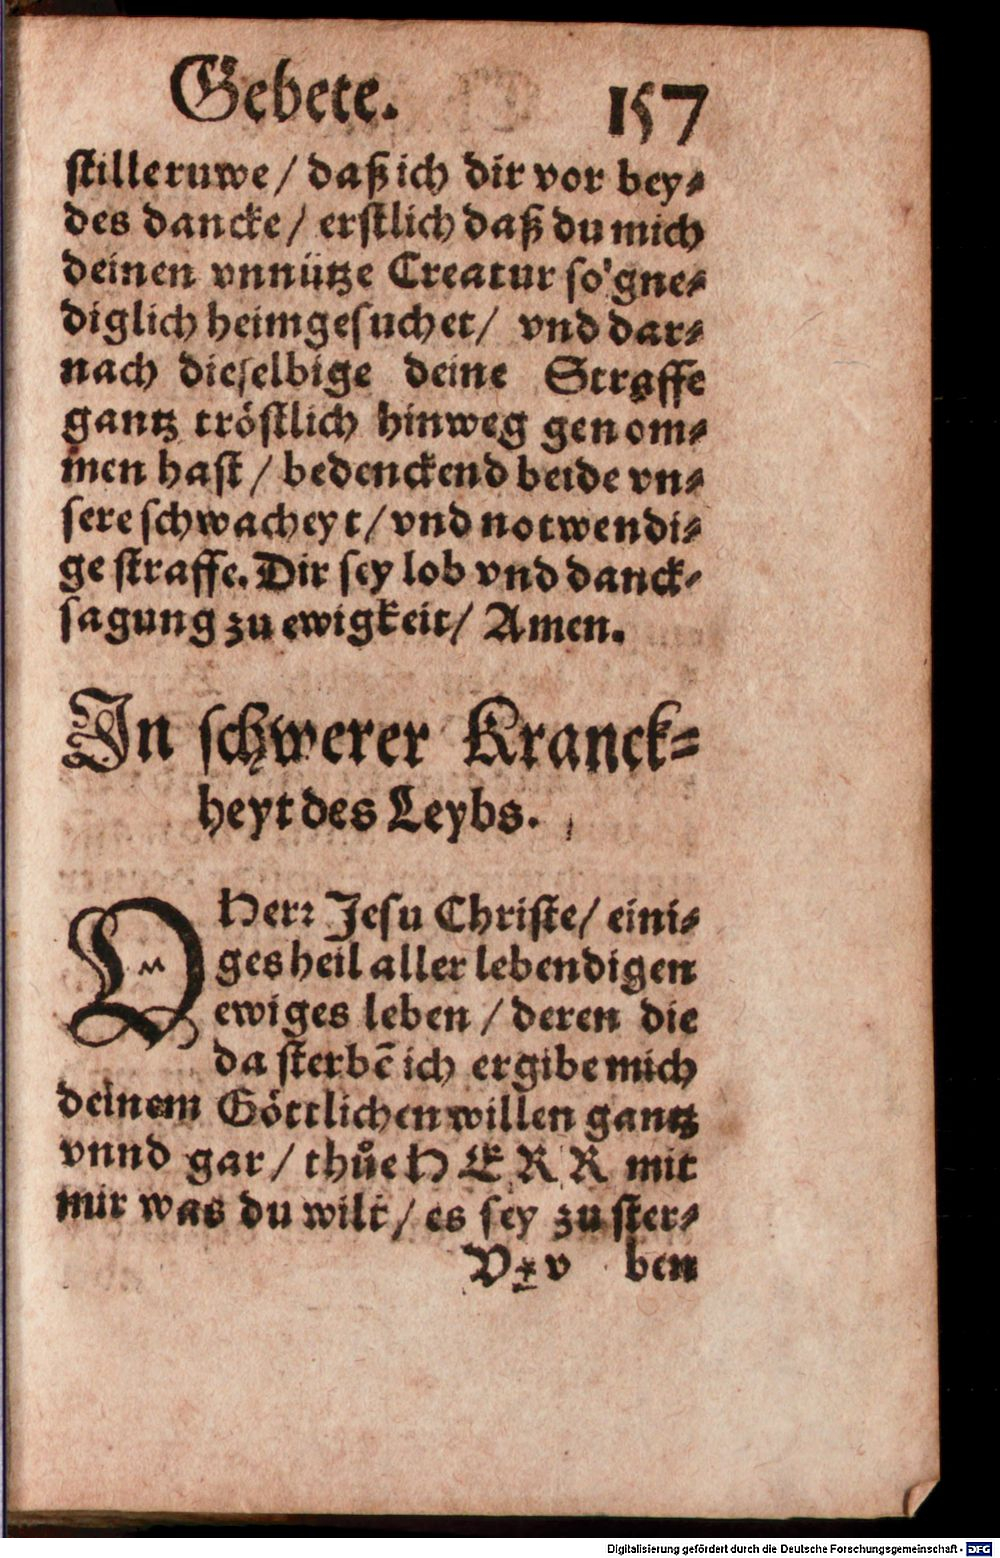 Gebete. 157
stille ruwe / daß ich dir vor bey⸗
des dancke / erstlich daß du mich
deinen vnnütze Creatur so gne⸗
diglich heimgesuchet / vnd dar⸗
nach dieselbige deine Straffe
gantz tröstlich hinweg genom⸗
men hast / bedenckend beide vn⸗
sere schwacheyt / vnd notwendi⸗
ge straffe. Dir sey lob vnd danck⸗
sagung zu ewigkeit / Amen.
In schwerer Kranck⸗
heyt des Leybs.
O Herr Jesu Christe / eini⸗
ges heil aller lebendigen
ewiges leben / deren die
da sterbē ich ergibe mich
deinem Göttlichen willen gantz
vnnd gar / thůe HERR mit
mir was du wilt / es sey zu ster⸗
V v ben
Digitalisierung gefördert durch die Deutsche Forschungsgemeinschaft - DFG